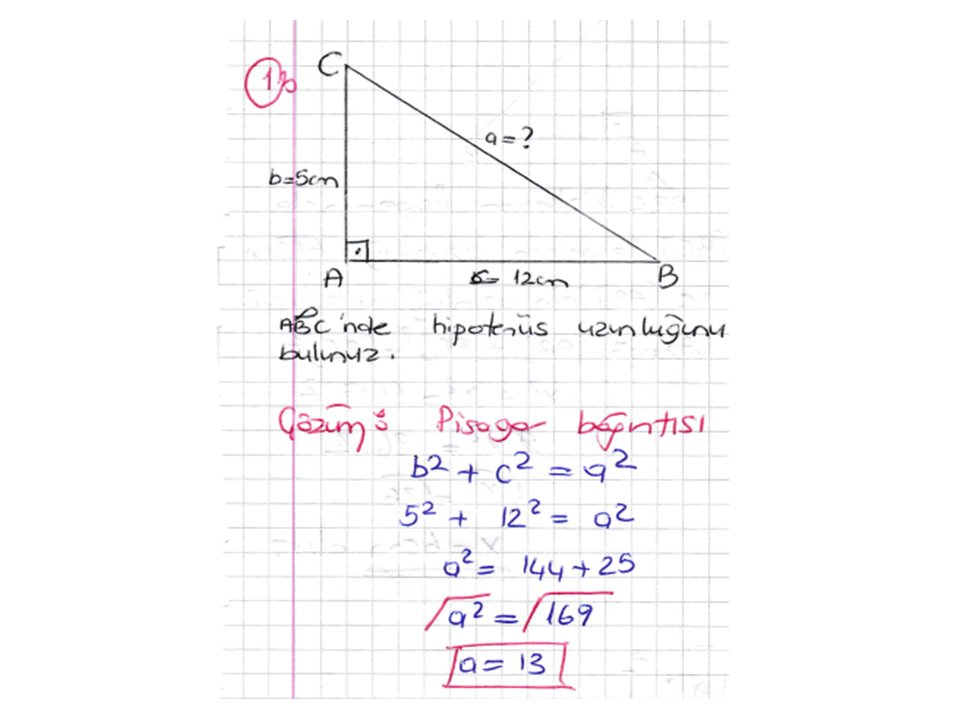 1)
C
a=?
b=5cm
A
c= 12cm
B
ABC'nde hipotenüs uzunluğunu
bulunuz.
Çözüm: Pisagor bağıntısı
b² + c² = a²
5² + 12² = a²
a² = 144 + 25
√a² = √169
a = 13